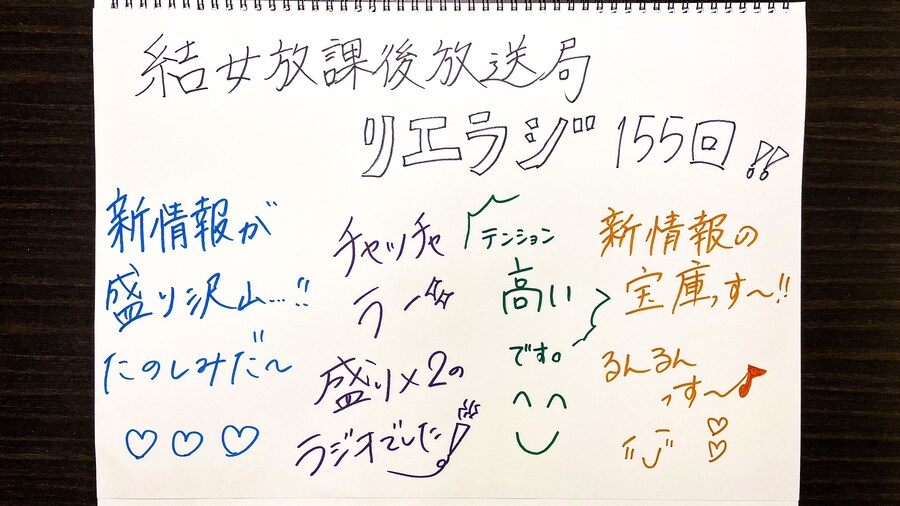 結女放課後放送局
リエラジ 155回!!
新情報が
盛り沢山…!!
たのしみだ〜
チャッチャ
ラー
盛り×2の
ラジオでした!
テンション
高い
です。
新情報の
宝庫っす〜!!
るんるん
っす〜♪